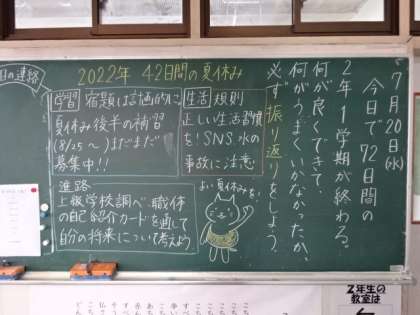 7月20日(水)
今日で72日間の
2年1学期が終わる。
何が良くできて、
何がうまくいかなかったか、
必ず振り返りをしよう。
2022年 42日間の夏休み
学習 宿題は計画的に
夏休み後半の補習
(8/25~)まだまだ
募集中!!
生活 規則
正しい生活習慣
を!SNS、水の
事故に注意
進路
上級学校調べ、職体
の自己紹介カードを通して
自分の将来について考えよう
よい夏休みを!
の連絡
2年生の
教室は